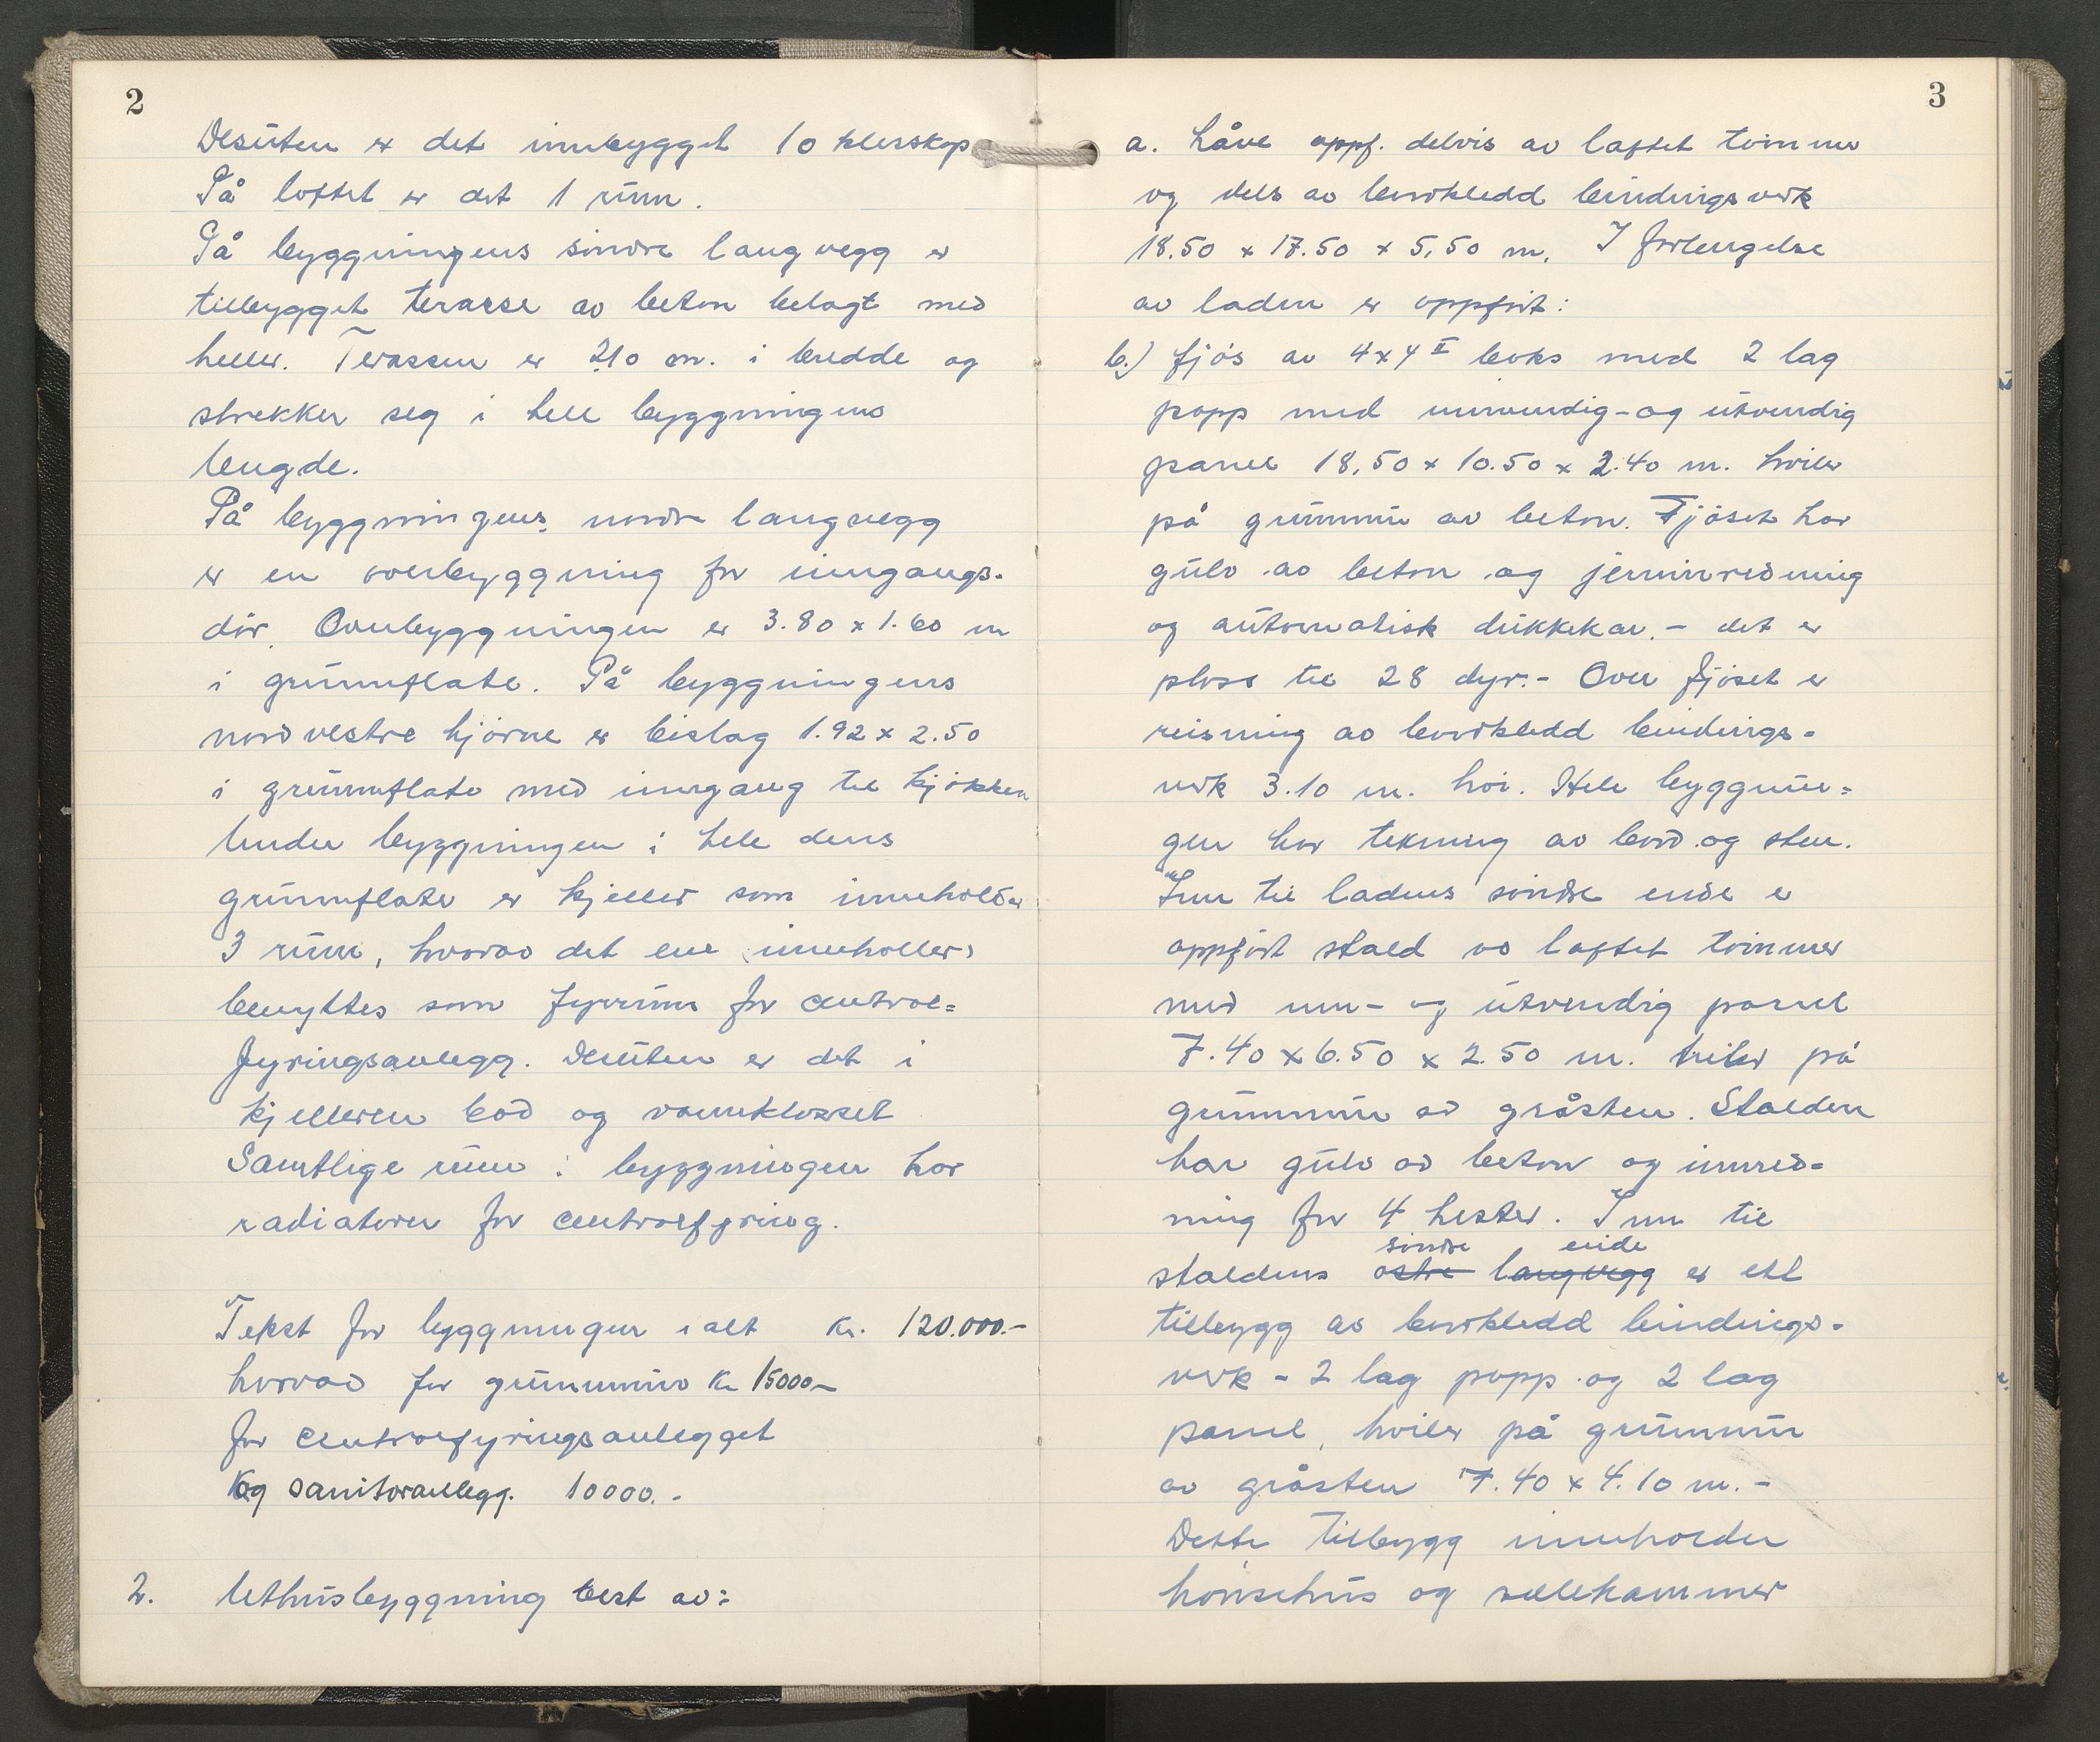 2
Desuten er det innbygget 10 klerskap
På loftet er det 1 rum.
På byggningens söndre langvegg er
tilbygget terasse av beton belagt med
heller. Terassen er 210 cm. i bredde og
strekker seg i hele byggningens
lengde.
På byggningens nordre langvegg
er en overbyggning for inngangs-
dör. Overbyggningen er 3.80 x 1.60 m
i grunnflate. På byggningens
nordvestre hjörne er bislag 1.92 x 2.50
i grunnflate med inngang til kjökken
Under byggningen i hele dens
grunnflate er kjeller som inneholder
3 rum, hvorav det ene (inneholler)
benyttes som fyrrum for central=
fyringsanlegg. Desuten er det i
kjelleren bod og vannklosset
Samtlige rum i byggningen har
radiatorer for centralfyring.
Tekst for byggningen ialt kr. 120.000.-
hvorav for grunnmur kr 15000-
for centralfyringsanlegget
og sanitæranlegg. 10000.-
2. Uthusbyggning best av:
3
a. Låve oppf. delvis av laftet tömmer
og dels av bordkledd bindingsverk
18.50 x 17.50 x 5,50 m. I forlengelse
av laden er oppfört:
b.) fjös av 4x4" boks med 2 lag
papp med innvendig- og utvendig
panel 18,50 x 10.50 x 2.40 m. hviler
på grunnmur av beton. Fjöset har
gulv av beton og jerninredning
og automatisk drikkekar. - det er
plass til 28 dyr.- Over fjöset er
reisning av bordkledd bindings=
verk 3.10 m. höi. Hele byggnin=
gen har tekning av bord og sten.
Inn til ladens söndre ende er
oppfört stald av laftet tömmer
med inn- og utvendig panel
7.40 x 6.50 x 2.50 m. hviler på
grunnmur av gråsten. Stalden
har gulv av beton og innred=
ning for 4 hester. Inn til
söndre ende
staldens östre langvegg er ett
tilbygg av bordkledd bindings=
verk - 2 lag papp og 2 lag
panel, hviler på grunnmur
av gråsten 7.40 x 4.10 m.-
Dette tilbygg inneholder
hönsehus og selekammer